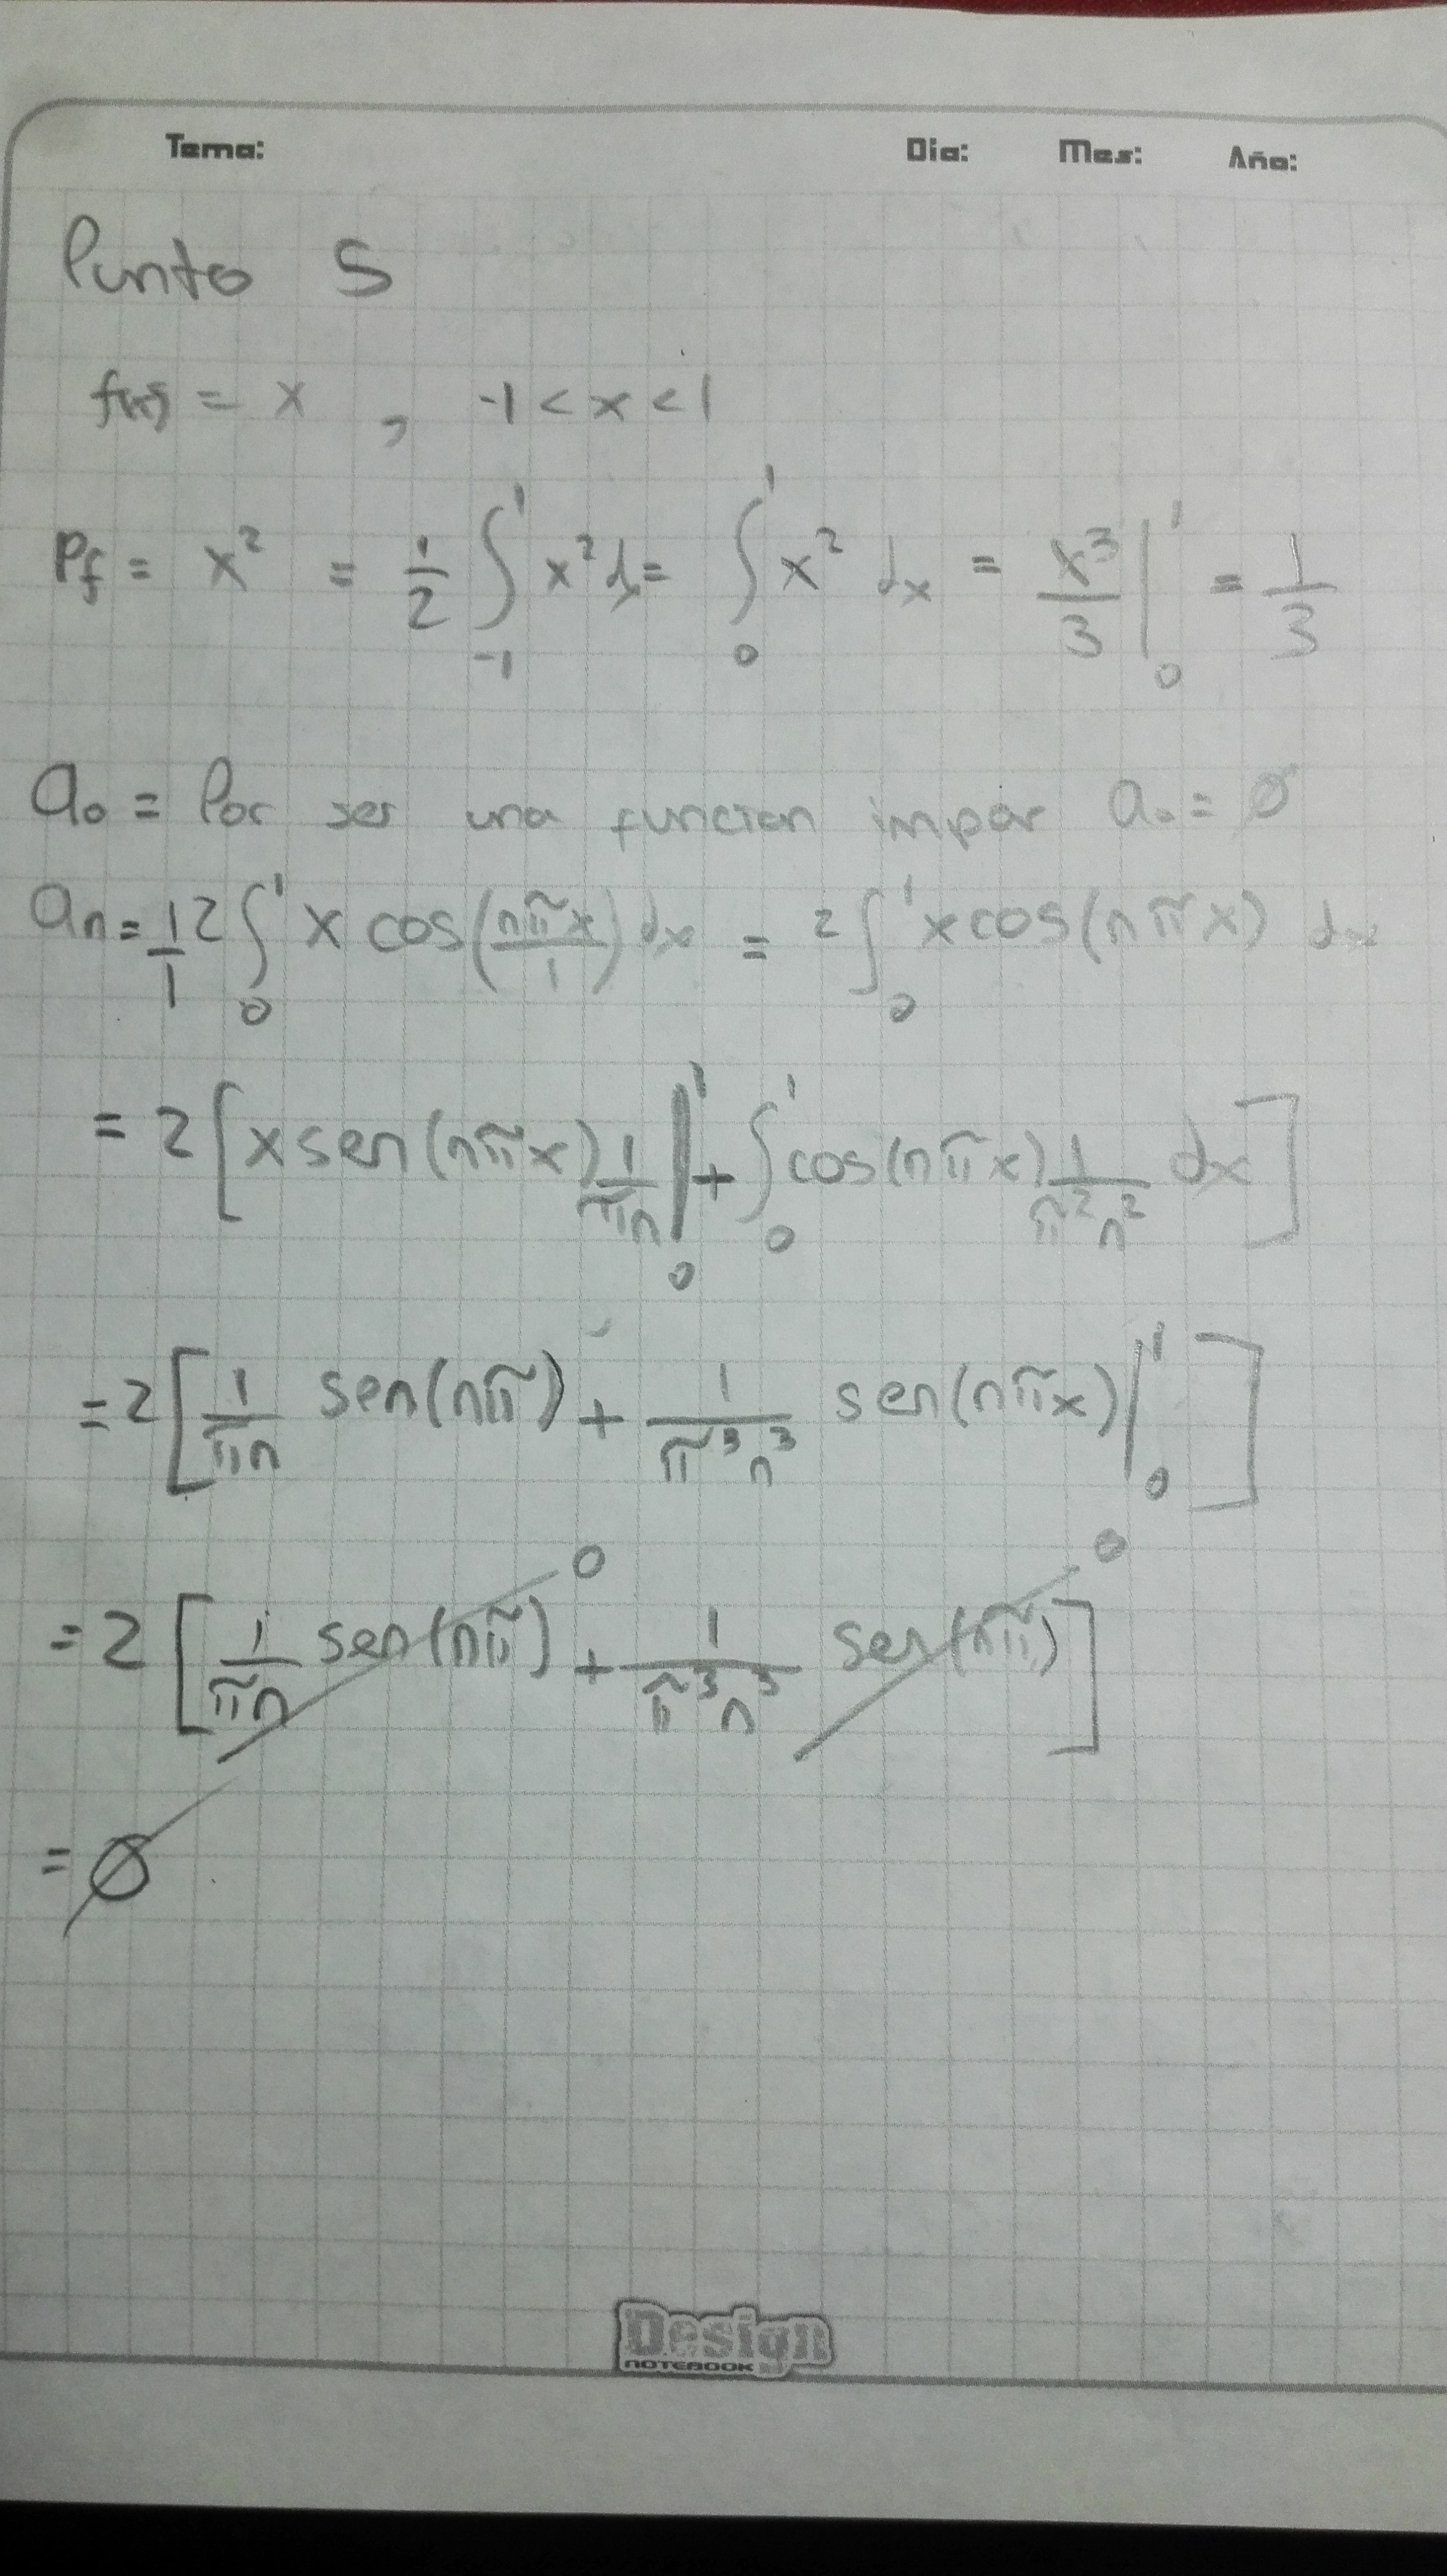 Tema: Dia: Mes: Año:
Punto 5
f(x) = x , -1 < x < 1
Pf = x² = 1/2 ∫₋₁¹ x² dx = ∫₀¹ x² dx = x³/3 |₀¹ = 1/3
a₀ = Por ser una funcion impar a₀ = Ø
aₙ = 1/1 2 ∫₀¹ x cos(nπx/1) dx = 2 ∫₀¹ x cos(nπx) dx
= 2 [ x sen(nπx) 1/πn |₀¹ + ∫₀¹ cos(nπx) 1/π²n² dx ]
= 2 [ 1/πn sen(nπ) + 1/π³n³ sen(nπx) |₀¹ ]
0 0
= 2 [ 1/πn sen(nπ) + 1/π³n³ sen(nπ) ]
= Ø
Design
NOTEBOOK